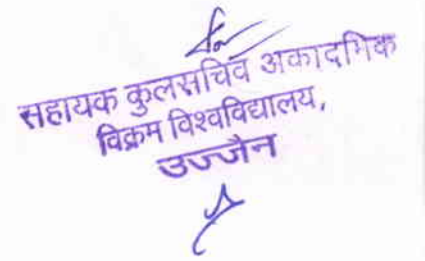 सहायक कुलसचिव अकादमिक
विक्रम विश्वविद्यालय,
उज्जैन